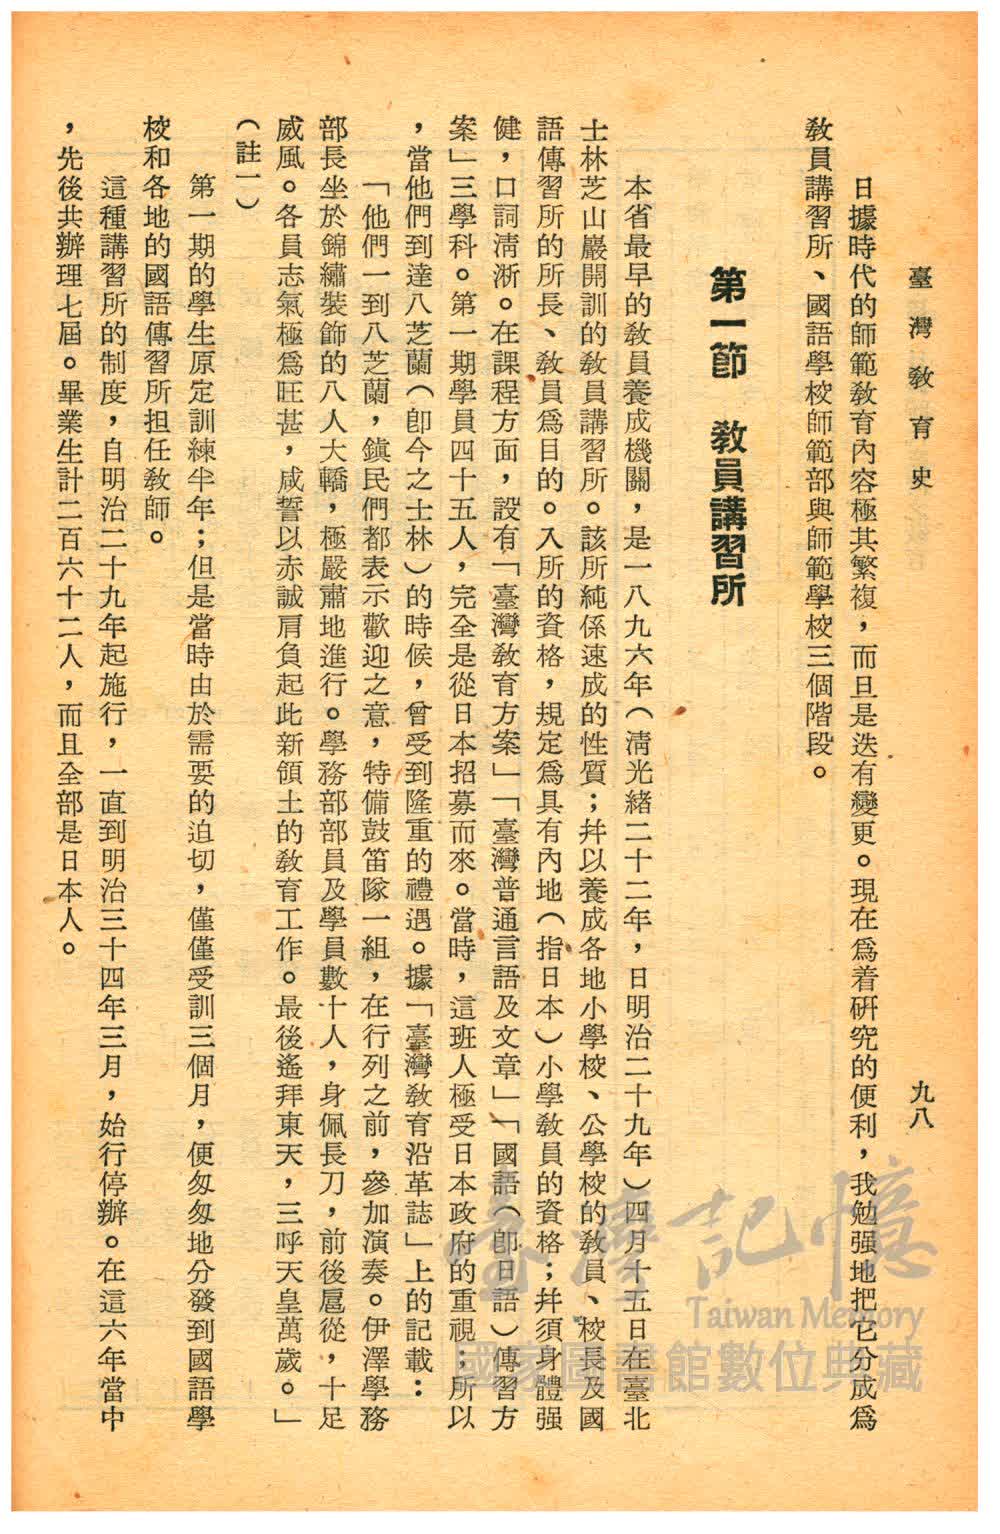 臺灣敎育史
九八
日據時代的師範敎育內容極其繁複，而且是迭有變更。現在爲着硏究的便利，我勉强地把它分成爲
敎員講習所、國語學校師範部與師範學校三個階段。
第一節　敎員講習所
本省最早的敎員養成機關，是一八九六年（淸光緒二十二年，日明治二十九年）四月十五日在臺北
士林芝山巖開訓的敎員講習所。該所純係速成的性質；幷以養成各地小學校、公學校的敎員、校長及國
語傳習所的所長、敎員爲目的。入所的資格，規定爲具有內地（指日本）小學敎員的資格；幷須身體强
健，口詞淸淅。在課程方面，設有「臺灣敎育方案」「臺灣普通言語及文章」「國語（卽日語）傳習方
案」三學科。第一期學員四十五人，完全是從日本招募而來。當時，這班人極受日本政府的重視；所以
，當他們到達八芝蘭（卽今之士林）的時候，曾受到隆重的禮遇。據「臺灣敎育沿革誌」上的記載：
「他們一到八芝蘭，鎭民們都表示歡迎之意，特備鼓笛隊一組，在行列之前，參加演奏。伊澤學務
部長坐於錦繡裝飾的八人大轎，極嚴肅地進行。學務部部員及學員數十人，身佩長刀，前後扈從，十足
威風。各員志氣極爲旺甚，咸誓以赤誠肩負起此新領土的敎育工作。最後遙拜東天，三呼天皇萬歲。」
（註一）
第一期的學生原定訓練半年；但是當時由於需要的迫切，僅僅受訓三個月，便匆匆地分發到國語學
校和各地的國語傳習所担任敎師。
這種講習所的制度，自明治二十九年起施行，一直到明治三十四年三月，始行停辦。在這六年當中
，先後共辦理七屆。畢業生計二百六十二人，而且全部是日本人。
臺灣記憶
Taiwan Memory
國家圖書館數位典藏